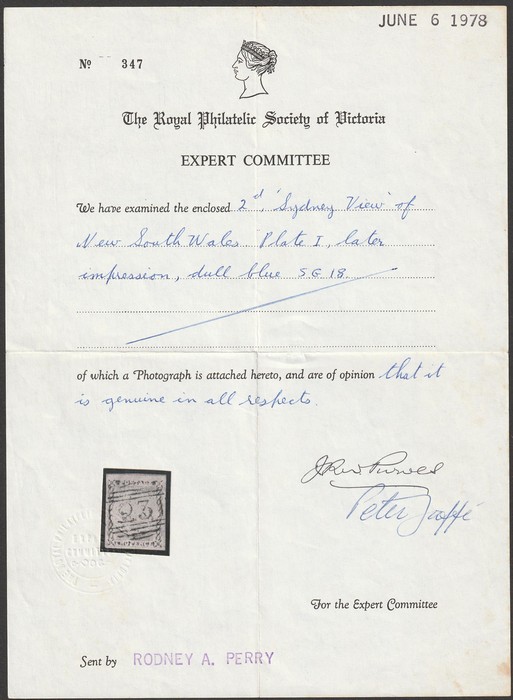 JUNE 6 1978
No 347
The Royal Philatelic Society of Victoria
EXPERT COMMITTEE
We have examined the enclosed 2d, 'Sydney View' of
New South Wales Plate I, later
impression, dull blue SG 18.
of which a Photograph is attached hereto, and are of opinion that it
is genuine in all respects.
23
J R W Purves
Peter Jaffé
For the Expert Committee
Sent by RODNEY A. PERRY